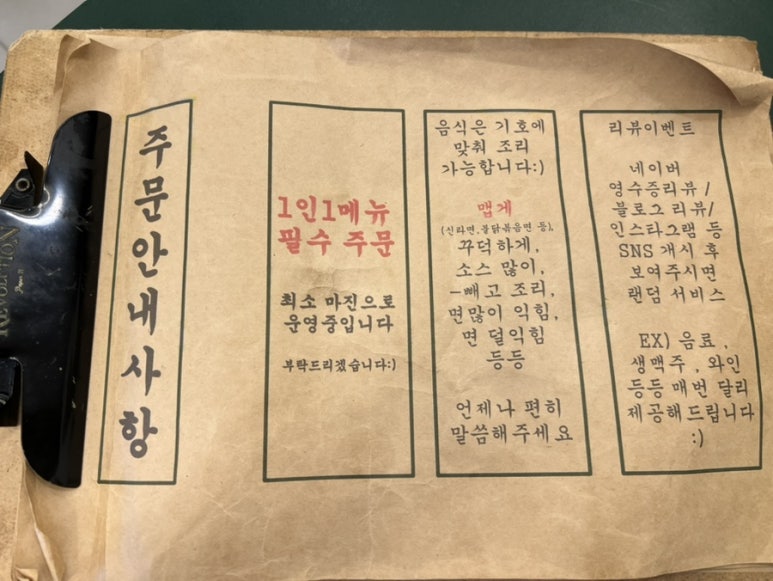 주문안내사항
1인1메뉴
필수 주문
최소 마진으로
운영중입니다
부탁드리겠습니다:)
음식은 기호에
맞춰 조리
가능합니다:)
맵게
(신라면,불닭볶음면 등),
꾸덕하게,
소스 많이,
-빼고 조리,
면많이 익힘,
면 덜익힘
등등
언제나 편히
말씀해주세요
리뷰이벤트
네이버
영수증리뷰 /
블로그 리뷰/
인스타그램 등
SNS 개시 후
보여주시면
랜덤 서비스
EX) 음료 ,
생맥주 , 와인
등등 매번 달리
제공해드립니다
:)
REVOLUTION